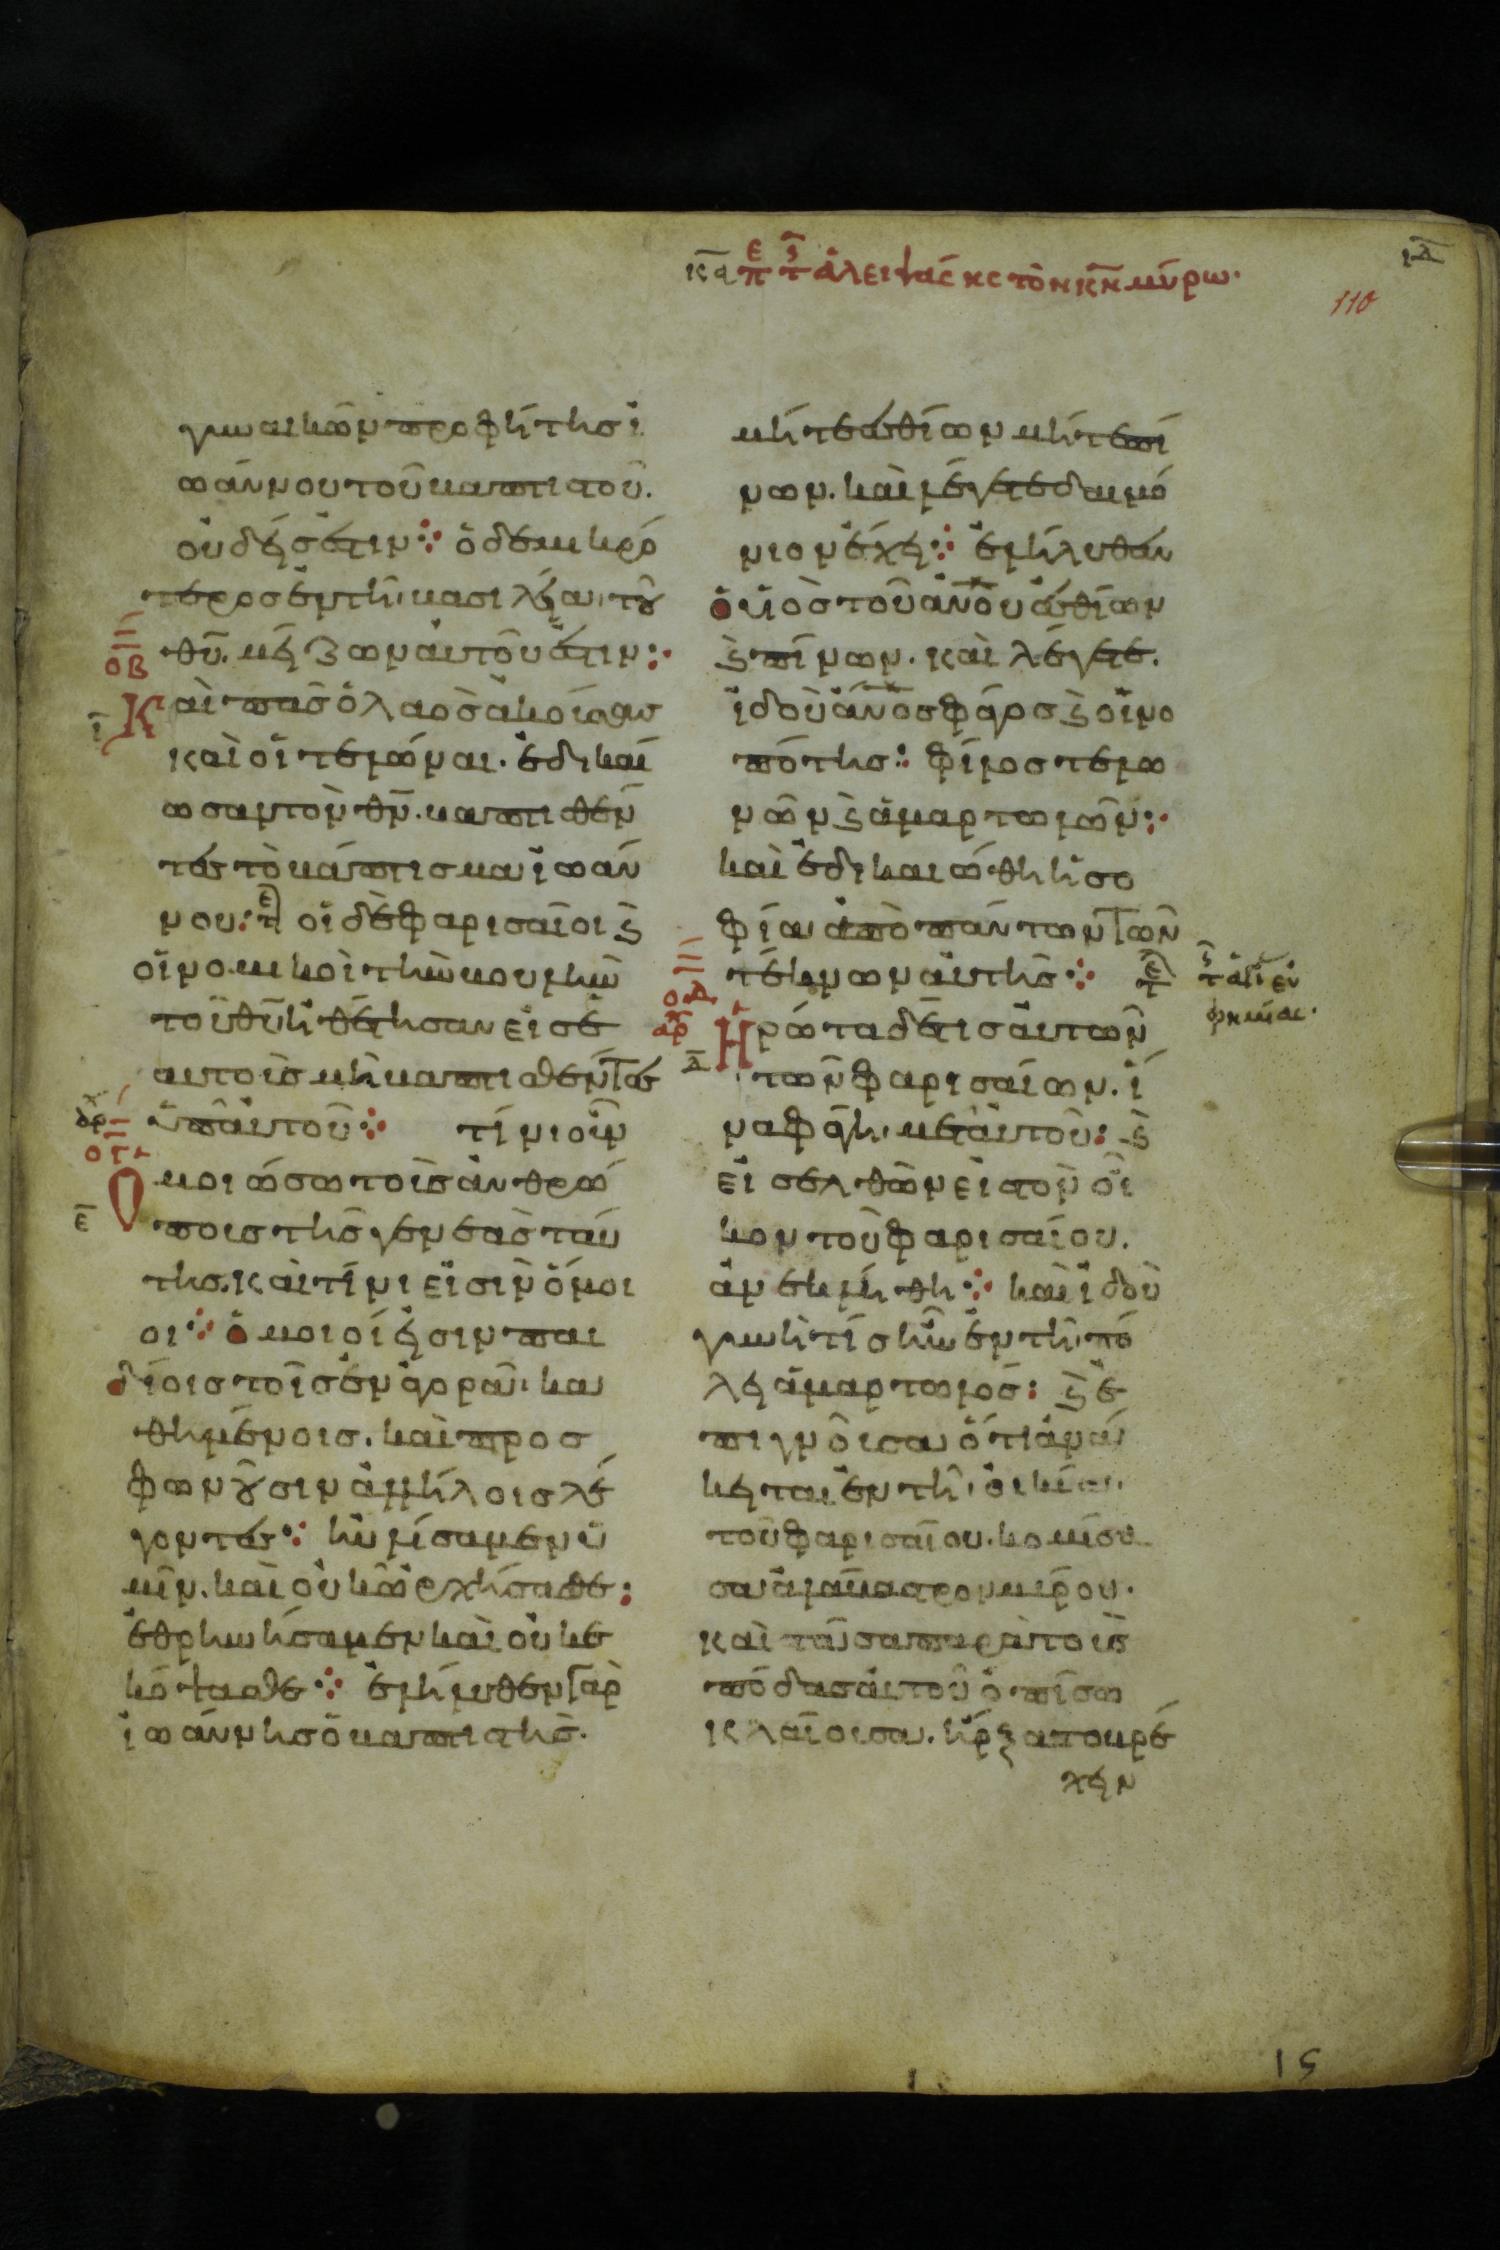 κα πε τϛ ἀλειψάσης τὸν κ̅ν̅ μύρω·
ι̅δ̅
110
γυναικῶν προφήτησ ἰ
ωάννου τοῦ βαπτιστοῦ.
οὐδείσ ἐστιν· ὁ δὲ μικρό
τεροσ ἐν τῆ βασιλεία τοῦ
θ̅υ̅. μείζων αὐτοῦ ἐστιν:
ο̅β̅
Καὶ πᾶσ ὁ λαὸσ ἀκούσασ
ι̅
καὶ οἱ τελώναι. ἐδικαί
ωσαν τὸν θ̅ν̅. βαπτισθέν
τεσ τὸ βάπτισμα ἰωάν
νου: τε οἱ δὲ φαρισαῖοι ϗ
οἱ νομικοὶ τὴν βουλὴν
τοῦ θ̅υ̅ ἠθέτησαν εἰσ ἑ
αυτοὺσ μὴ βαπτισθέντεσ
ὑπ᾽ αὐτοῦ· τίνι οὖν
αρ
ογ
ὁμοιώσω τοὺσ ἀνθρώ
ε̅
πουσ τῆσ γενεᾶσ ταύ
τησ. καὶ τίνι εἰσὶν ὅμοι
οι· ὅμοιοί εἰσιν παι
δίοισ τοῖσ ἐν ἀγορᾶ κα
θημένοισ. καὶ προσ
φωνοῦσιν ἀλλήλοισ λέ
γοντεσ· ηὐλήσαμεν ὑ
μῖν. καὶ οὐκ ὠρχήσασθε:
ἐθρηνήσαμεν καὶ οὐκ ἐ
κόψασθε· ἐλήλυθεν γὰρ
ἰωάννησ ὁ βαπτιστὴσ.
μήτε ἐσθίων μήτε πί
νων. καὶ λέγετε δαιμό
νιον ἔχει· ἐλήλυθεν
ὁ υἱὸσ τοῦ ἀν̅ο̅υ ἐσθίων
ϗ πίνων. καὶ λέγετε.
ἰδοὺ ἀν̅ο̅σ φάγοσ ϗ οἰνο
πότησ: φίλοσ τελω
νῶν ϗ ἁμαρτωλῶν:
καὶ ἐδικαιώθη ἡ σο
φία ἀπὸ πάντων τῶν
τέκνων αὐτῆσ· τε
ο̅δ̅
αρ
Ἠρώτα δέ τισ αὐτὸν
δ̅
τῶν φαρισαίων. ἵ
να φάγη μετ᾽ αὐτοῦ: ϗ
εἰσελθὼν εἰσ τὸν οἶ
κον τοῦ φαρισαίου.
ἀνεκλήθη· καὶ ἰδοὺ
γυνὴ τίσ ἦν ἐν τῆ πό
λει ἁμαρτωλόσ: ϗ ἐ
πιγνοῦσα ὅτι ἀνά
κειται ἐν τῆ οἰκία
τοῦ φαρισαίου. κομίσα
σα ἀλάβαστρον μύρου.
καὶ στᾶσα παρὰ τοὺσ
πόδασ αὐτοῦ ὀπίσω
κλαίουσα. ἤρξατο βρέ
χειν
ιϛ